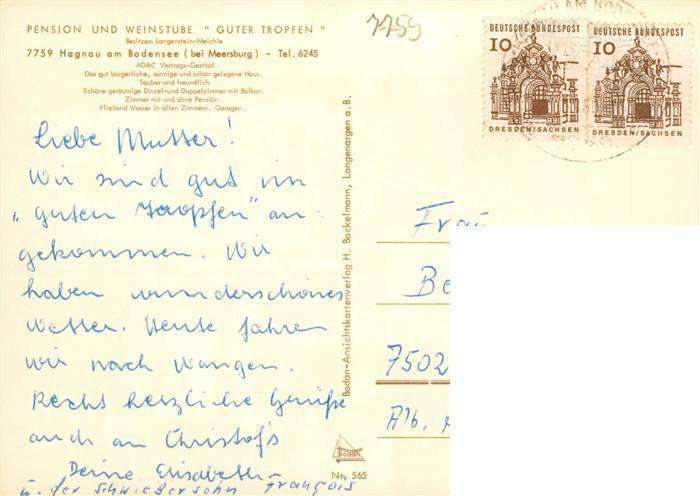 PENSION UND WEINSTUBE " GUTER TROPFEN "
Besitzer: Langenstein-Meichle
7759 Hagnau am Bodensee ( bei Meersburg ) - Tel. 6245
ADAC Vertrags-Gasthof
Das gut bürgerliche, sonnige und schön gelegene Haus.
Sauber und freundlich
Schöne geräumige Einzel-und Doppelzimmer mit Balkon.
Zimmer mit und ohne Pension.
Fließend Wasser in allen Zimmern. Garagen.
7759
DEUTSCHE BUNDESPOST
10
DRESDEN/SACHSEN
DEUTSCHE BUNDESPOST
10
DRESDEN/SACHSEN
Liebe Mutter!
Wir sind gut im
„guten Tropfen" an-
gekommen. Wir
haben wunderschönes
Wetter. Heute fahren
wir nach Wangen.
Recht herzliche Grüße
auch an Christof's
Deine Elisabeth
u. der Schwiegersohn François
Bodan-Ansichtskartenverlag H. Bockelmann, Langenargen a.B.
bodan
Nr. 565
Frau
Be
7502
Alb.